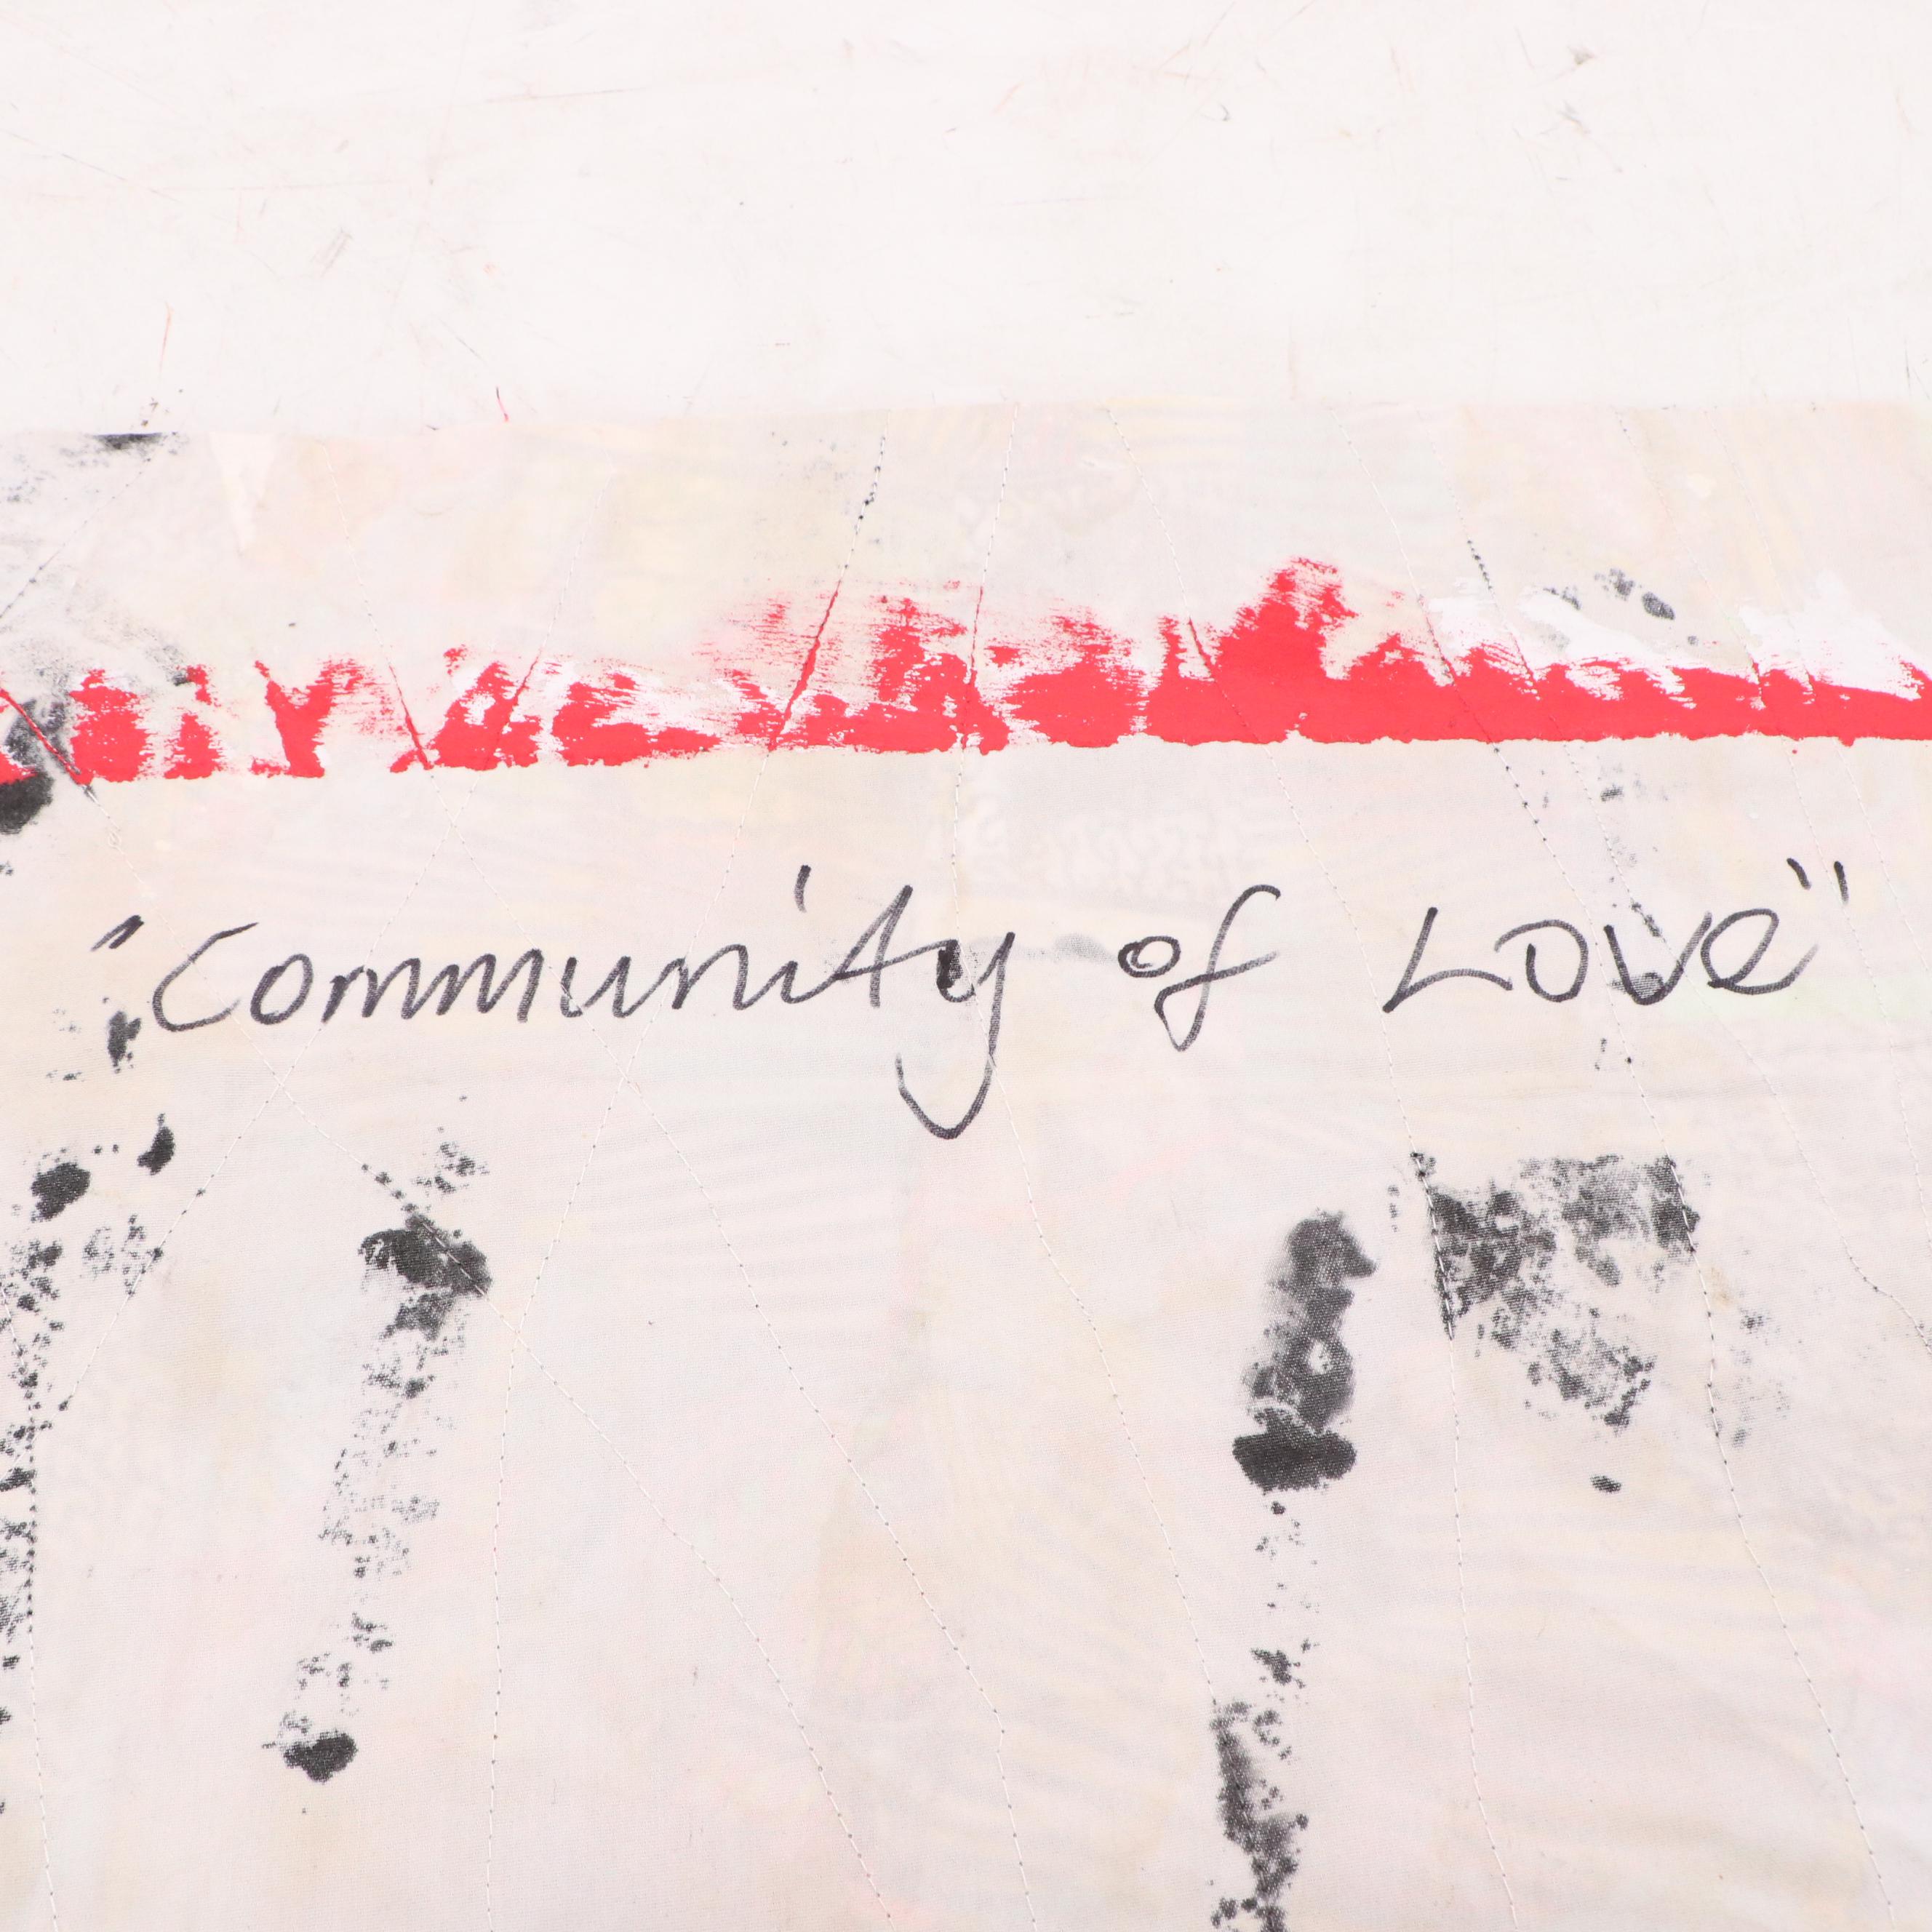 "Community of Love"